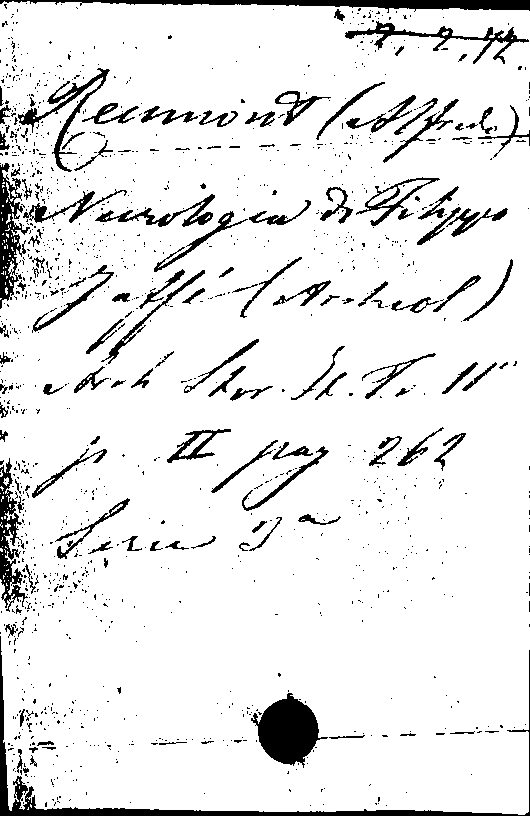 2, 2, 72.
Reumont (Alfredo)
Necrologia di Filippo
Jaffé (Archeol)
Arch Stor. It. To. 11°
p. II pag 262
Serie 3ª